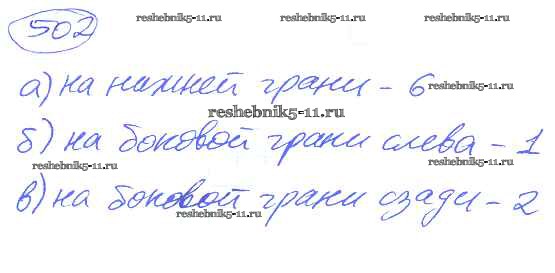 502
reshebnik5-11.ru
reshebnik5-11.ru
а) на нижней грани - 6
reshebnik5-11.ru
reshebnik5-11.ru
б) на боковой грани слева - 1
reshebnik5-11.ru
reshebnik5-11.ru
в) на боковой грани сзади - 2
reshebnik5-11.ru